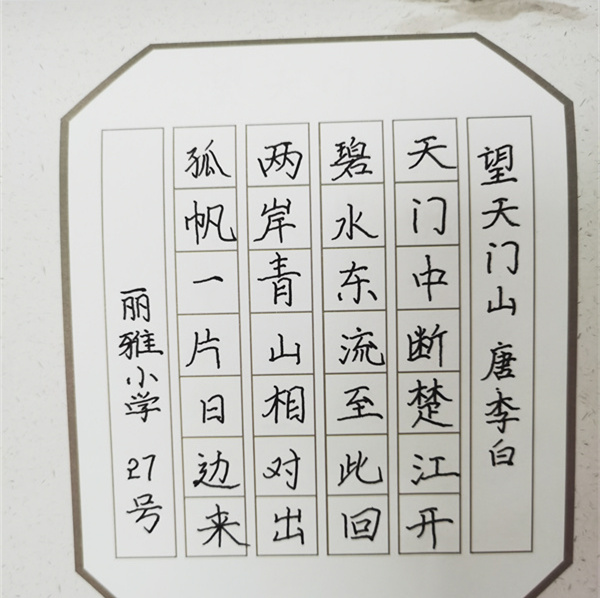 望天门山 唐李白
天门中断楚江开
碧水东流至此回
两岸青山相对出
孤帆一片日边来
丽雅小学 27号